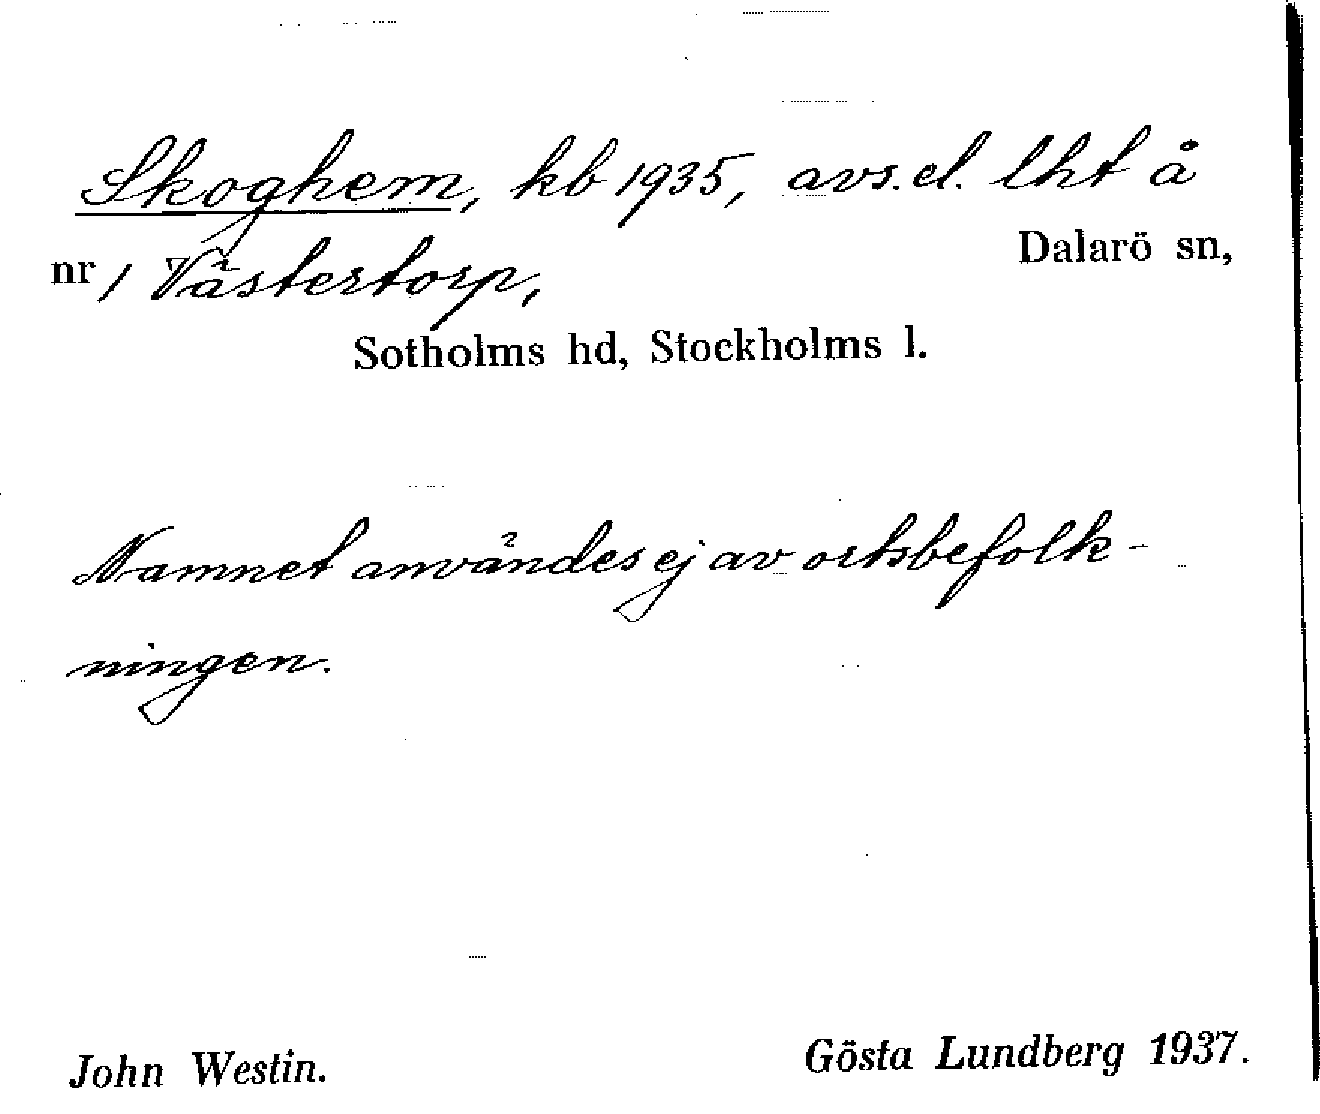 Skoghem, kb 1935, avs. el. lht å
nr 1 Västertorp, Dalarö sn,
Sotholms hd, Stockholms l.
Namnet användes ej av ortsbefolk-
ningen.
John Westin. Gösta Lundberg 1937.